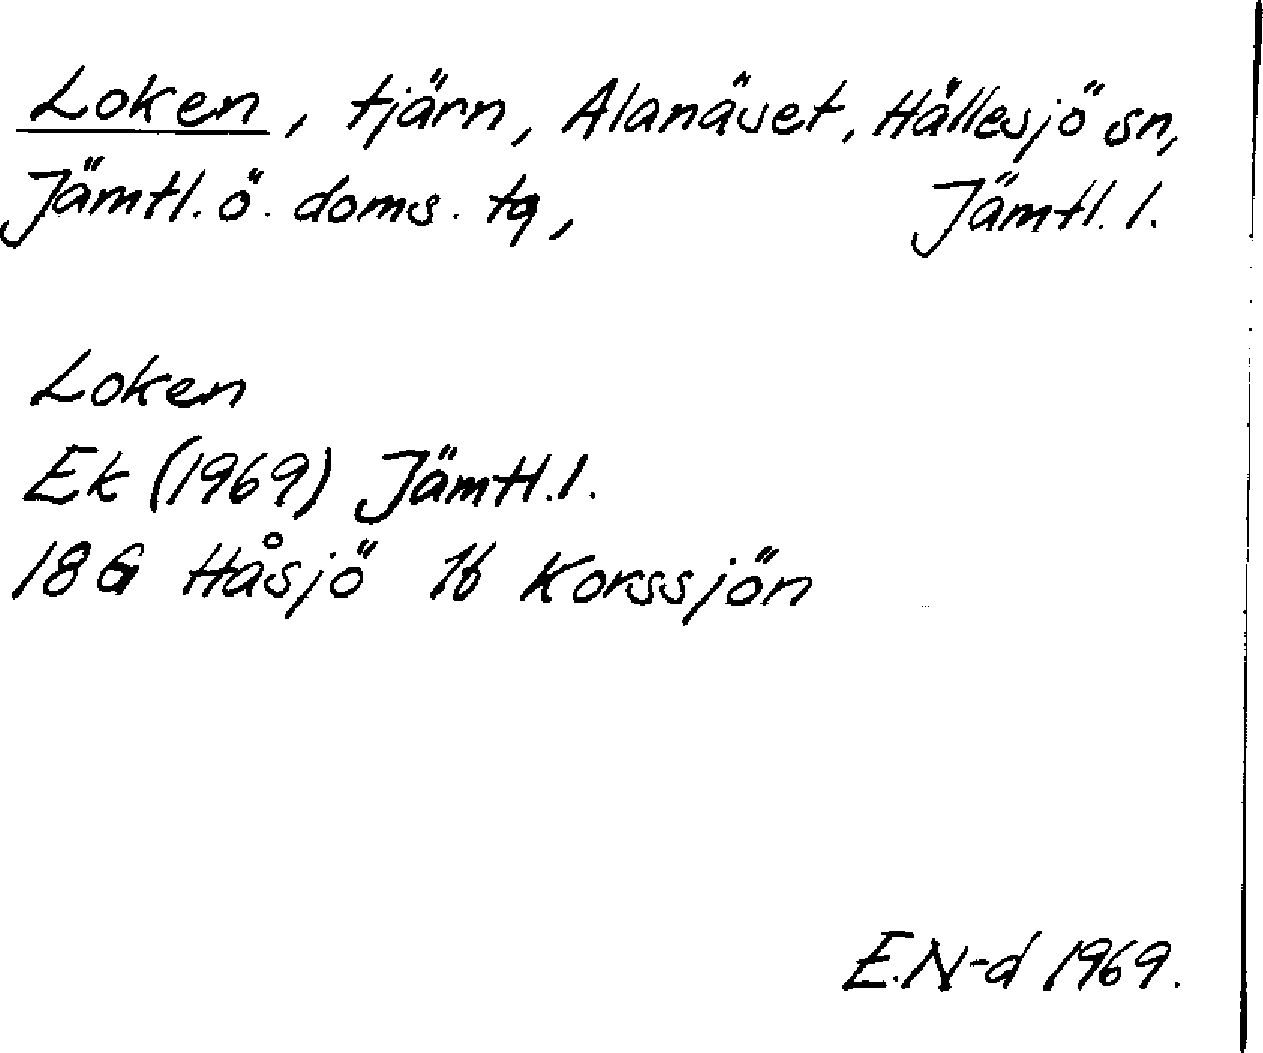 Loken, tjärn, Alanäset, Hällesjö sn,
Jämtl. ö. doms. tg, Jämtl. l.
Loken
Ek (1969) Jämtl. l.
18 G Håsjö 1b Korssjön
E.N-d 1969.